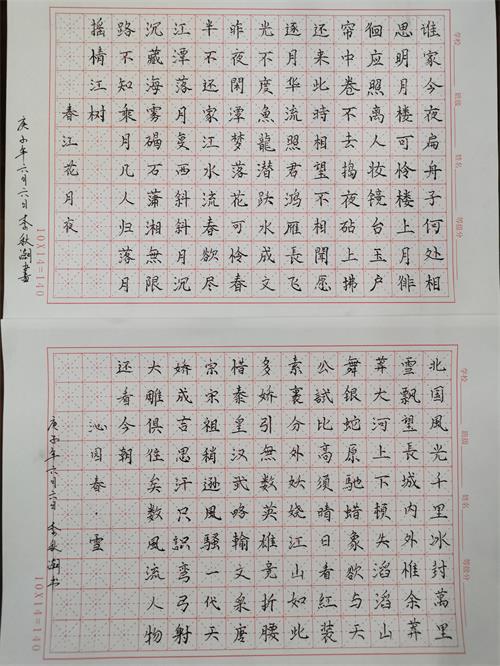 谁家今夜扁舟子何处相
思明月楼可怜楼上月徘
徊应照离人妆镜台玉户
帘中卷不去捣夜砧上拂
还来此時相望不相聞愿
逐月华流照君鸿雁長飞
光不度魚龍潜跃水成文
昨夜閑潭梦落花可怜春
半不还家江水流春欲尽
江潭落月复西斜斜月沉
沉藏海雾碣石蒲湘無限
路不知乘月几人归落月
摇情江树
春江花月夜
庚子年六月六日 李敏湖書
学校
班级
姓名
等级分
10X14=140
北国風光千里冰封萬里
雪飘望長城内外惟余莽
莽大河上下頓失滔滔山
舞银蛇原馳蜡象欲与天
公試比高須晴日看紅装
素裹分外妖娆江山如此
多娇引無数英雄竞折腰
惜秦皇汉武略输文采唐
宗宋祖稍遜風騷一代天
娇成吉思汗只識弯弓射
大雕俱往矣数風流人物
还看今朝
沁园春·雪
庚子年六月六日 李敏湖书
学校
班级
姓名
等级分
10X14=140